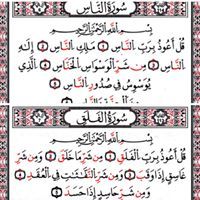 سُورَةُ النَّاسِ
بِسْمِ اللَّهِ الرَّحْمَٰنِ الرَّحِيمِ
قُلْ أَعُوذُ بِرَبِّ النَّاسِ ۝ مَلِكِ النَّاسِ ۝ إِلَٰهِ
النَّاسِ ۝ مِن شَرِّ الْوَسْوَاسِ الْخَنَّاسِ ۝ الَّذِي
يُوَسْوِسُ فِي صُدُورِ النَّاسِ ۝
سُورَةُ الْفَلَقِ
بِسْمِ اللَّهِ الرَّحْمَٰنِ الرَّحِيمِ
قُلْ أَعُوذُ بِرَبِّ الْفَلَقِ ۝ مِن شَرِّ مَا خَلَقَ ۝ وَمِن شَرِّ
غَاسِقٍ إِذَا وَقَبَ ۝ وَمِن شَرِّ النَّفَّٰثَٰتِ فِي الْعُقَدِ
۝ وَمِن شَرِّ حَاسِدٍ إِذَا حَسَدَ ۝